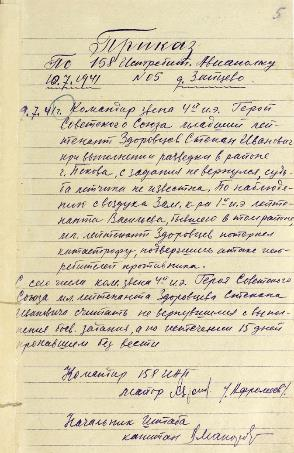 5
Приказ
По 158 Истребит. Авиаполку
10.7.1941 № 05 д. Зайцево
9.7.41г. Командир звена 4й иэ. Герой
Советского Союза младший лей-
тенант Здоровцев Степан Иванович
при выполнении разведки в районе
г. Пскова, с задания не вернулся, судь-
ба летчика не известна. По наблюде-
нию с воздуха Зам. к-ра 1й иэ лейте-
нанта в то же время
мл. лейтенант Здоровцев потерпел
катастрофу, подвергшись атаке ист-
ребителей противника.
С сего числа ком. звена 4й иэ. Героя Советского
Союза мл. лейтенанта Здоровцева Степана
Ивановича считать не вернувшимся с выпол-
нения боев. задания, а по истечении 15 дней
пропавшим без вести
Командир 158 ИАП
майор
Начальник Штаба
капитан